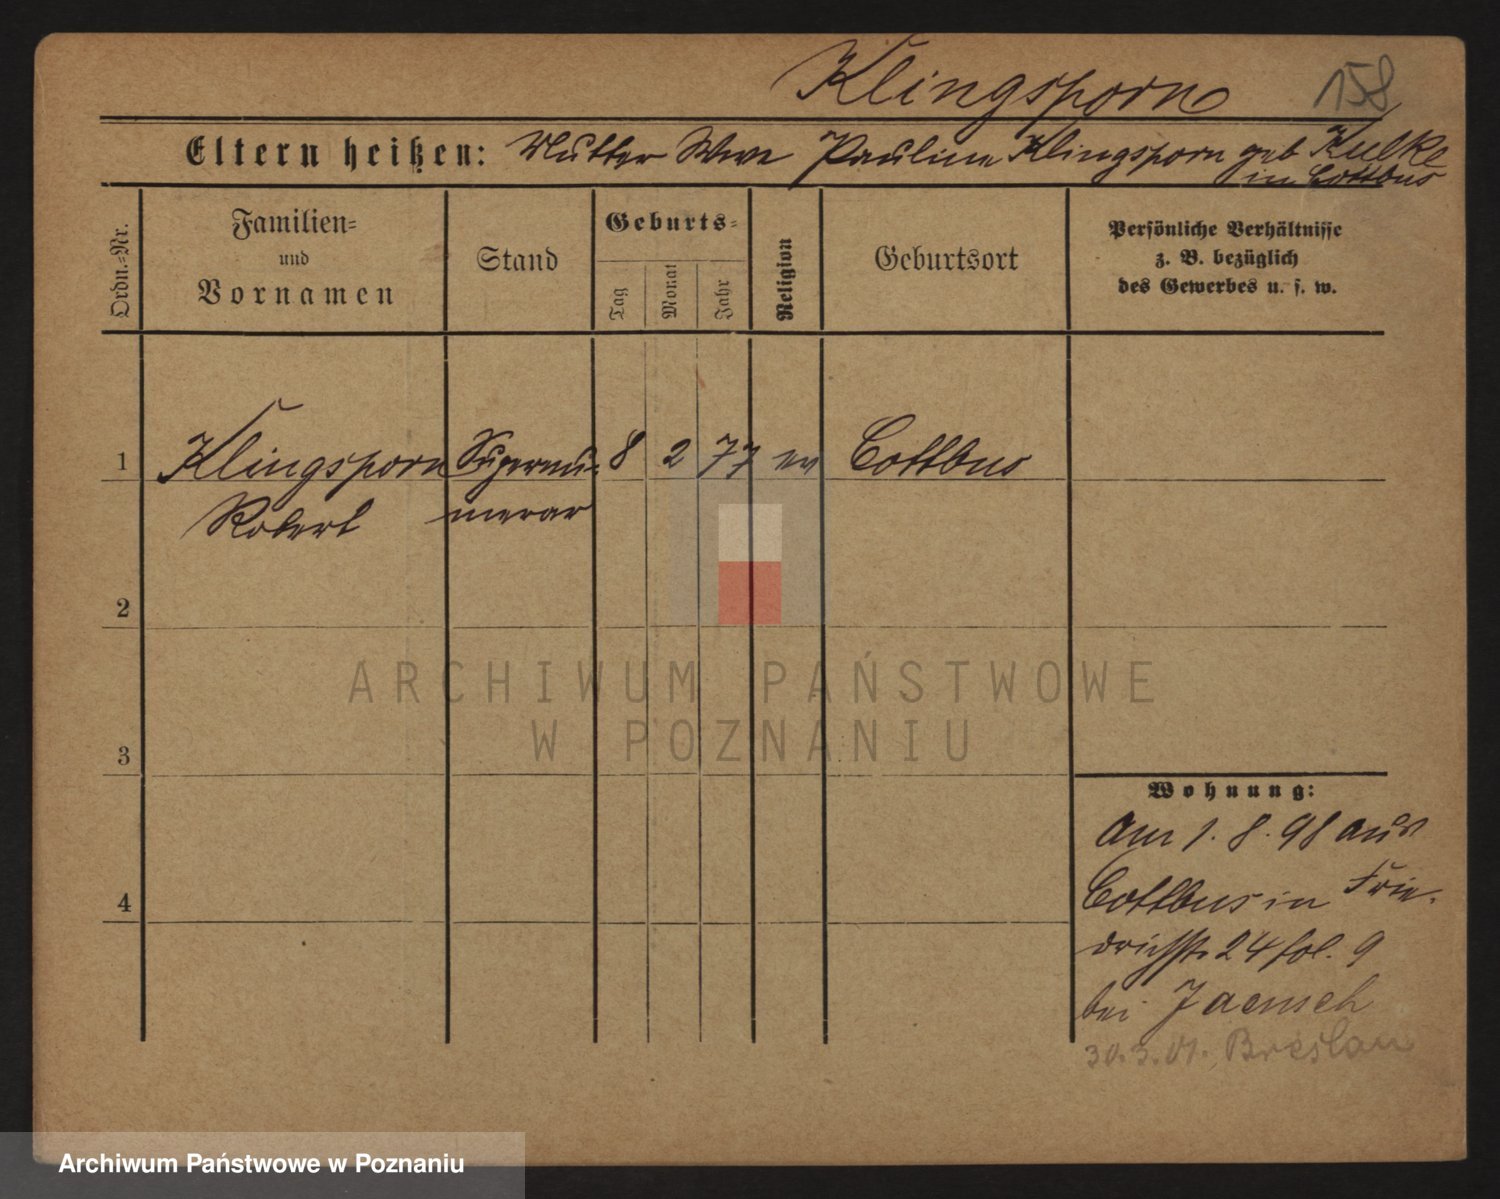 Klingsporn
158
Eltern heißen: Mutter Wwe Pauline Klingsporn geb Kulke
in Cottbus
Ordn.=Nr.
Familien=
und
Vornamen
Stand
Geburts=
Tag
Monat
Jahr
Religion
Geburtsort
Persönliche Verhältnisse
z. B. bezüglich
des Gewerbes u. s. w.
1
Klingsporn Supernu- 8 2 77 ev Cottbus
Robert merar
2
3
4
Wohnung:
Am 1. 8. 98 aus
Cottbus in Frie-
drichst. 24 fol. 9
bei Jaensch
30. 3. 01. Breslau
ARCHIWUM PAŃSTWOWE
W POZNANIU
Archiwum Państwowe w Poznaniu